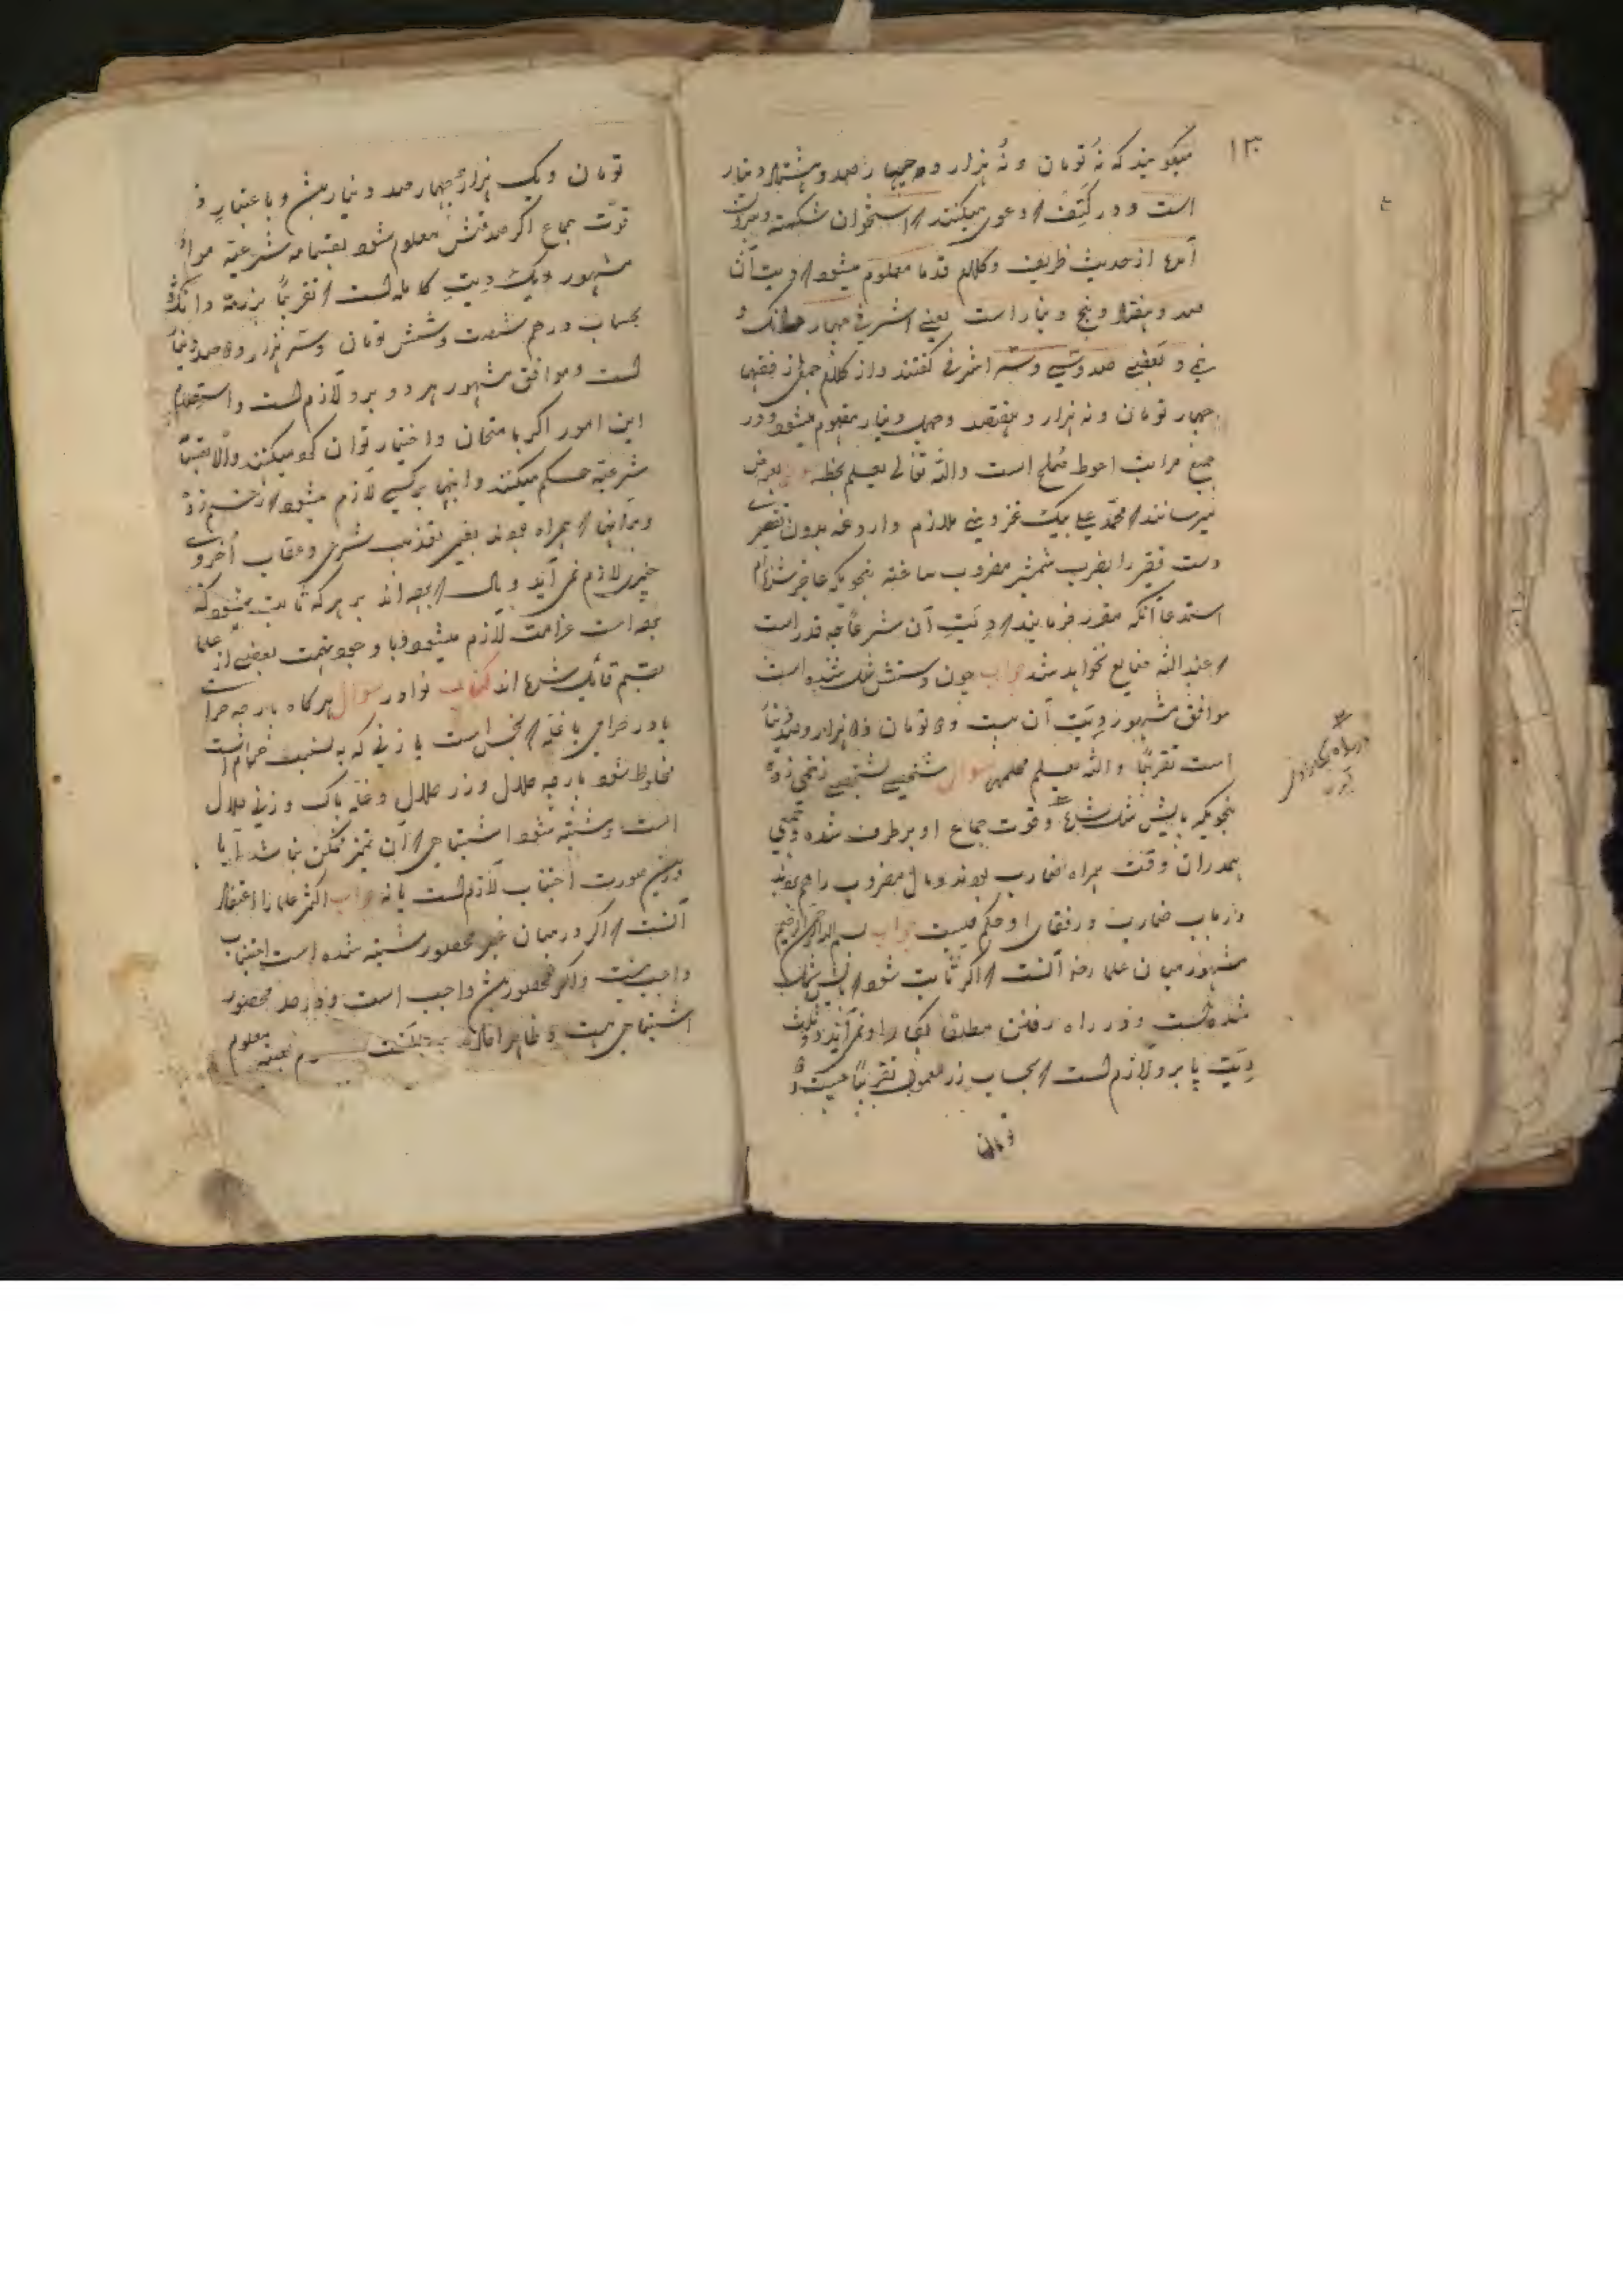 ۱۳
میگویند که نُه تومان و نُه هزار و چهار صد و هشتاد دینار
است و در کتف دعوی میکنند استخوان شکسته و بیرون
آمده از حدیث ظریف و کلام قدما معلوم میشود دیت آن
صد و هفتاد و پنج دینار است یعنی اشرفی چهار دانک و
نیم و بعضی صد و سی و سه اشرفی گفتند و از کلام جمعی از فقها
چهار تومان و نه هزار و هفتصد و چهل دینار مفهوم میشود و در
جمیع مراتب احوط صلح است والله تعالی یعلم بعرض
میرسانند محمد علی بیک قزوینی ملازم داروغه بدون تقصیر
دست فقیر را بضرب شمشیر مضروب ساخته بنحویکه عاجز شده‌ام
استدعا آنکه مقرر فرمایند دیت آن شرعاً چه قدر است
عند الله ضایع نخواهد شد جواب چون دستش شل شده است
موافق مشهور دیت آن بیست و دو تومان و هزار و صد دینار
است تقریباً والله یعلم سوال شخصی بشخصی زخمی زده
بنحویکه پایش شل شده و قوت جماع او برطرف شده و جمعی
همدران وقت همراه ضارب بودند و مال مضروب را هم بردند
در باب ضارب و رفقای او حکم چیست جواب بسم الله الرحمن الرحیم
مشهور میان علما رضه آنست اگر ثابت شود پایش شل
شده است و در راه رفتن مطلقا بکار او نمی‌آید دو ثلث
دیت پا برو لازم است بحساب زر معمول تقریباً بیست و
تومان
تومان و یک هزار و چهار صد دینار میشود و باعتبار
قوت جماع اگر صدقش معلوم شود بقسامه شرعیه موافق
مشهور یک دیت کامله است تقریباً بزرعه دانک
بحساب درهم شصت و شش تومان و سه هزار و صد دینار
است و موافق مشهور هر دو برو لازم است و استعلام
این امور اگر بامتحان و اختبار توان کرد میکنند والا بقسامه
شرعیه حکم میکنند و اینها بر کسی لازم میشود زخم زده
و بر آنها همراه بودند بغیر تعذیب شرعی و عقاب اخروی
چیزی لازم نمی‌آید و مال برده‌اند بر هر که ثابت میشود که
برده است غرامت لازم میشود و با وجود تهمت بعضی از علما
بقسم قائل شده‌اند کتاب نوادر سوال هرگاه پارچه حرام
یا زر حرامی یا غله نجس است یا زنی که به نسبت حرام است
مخلوط شود پارچه حلال و زر حلال و غله پاک و زنی حلال
است و مشتبه شود اشتباهی آن تمیز ممکن نباشد آیا
درین صورت اجتناب لازم است یا نه جواب اکثر علما را اعتقاد
آنست اگر در میان غیر محصور مشتبه شده است اجتناب
واجب نیست و اگر محصور میشود واجب است و در حد محصور
اشتباهی هست و ظاهرا معلوم